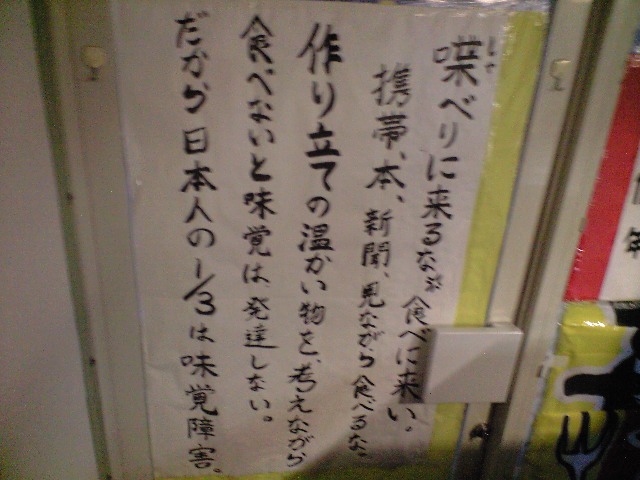 喋べりに来るな、食べに来い。
しゃ
携帯、本、新聞、見ながら食べるな。
作り立ての温かい物を、考えながら
食べないと味覚は発達しない。
だから日本人の1/3は味覚障害。